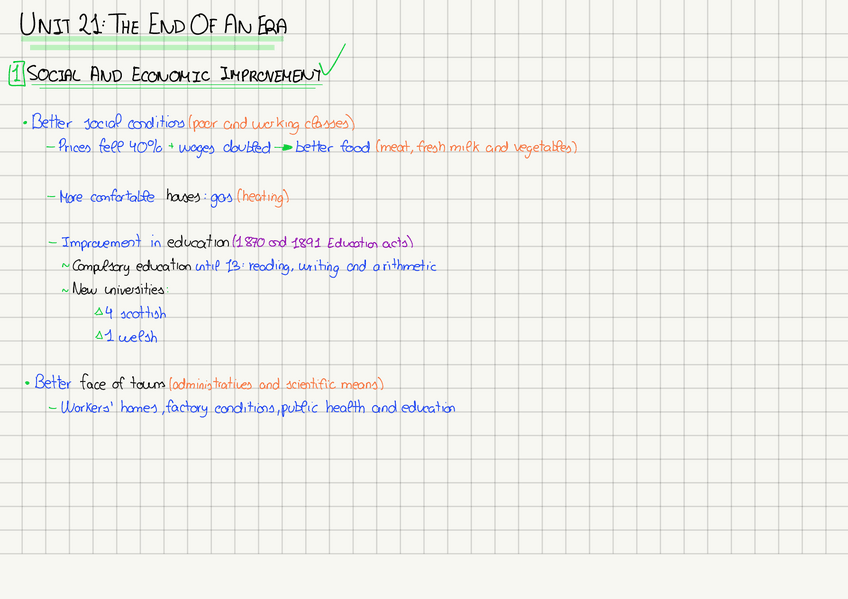 UNIT 21: THE END OF AN ERA
1 SOCIAL AND ECONOMIC IMPROVEMENT
• Better social conditions (poor and working classes)
– Prices fell 40% + wages doubled → better food (meat, fresh milk and vegetables)
– More confortable houses: gas (heating)
– Improvement in education (1870 and 1891 Education acts)
~ Compulsory education until 13: reading, writing and arithmetic
~ New universities:
△ 4 scottish
△ 1 welsh
• Better face of town (administratives and scientific means)
– Workers' homes, factory conditions, public health and education